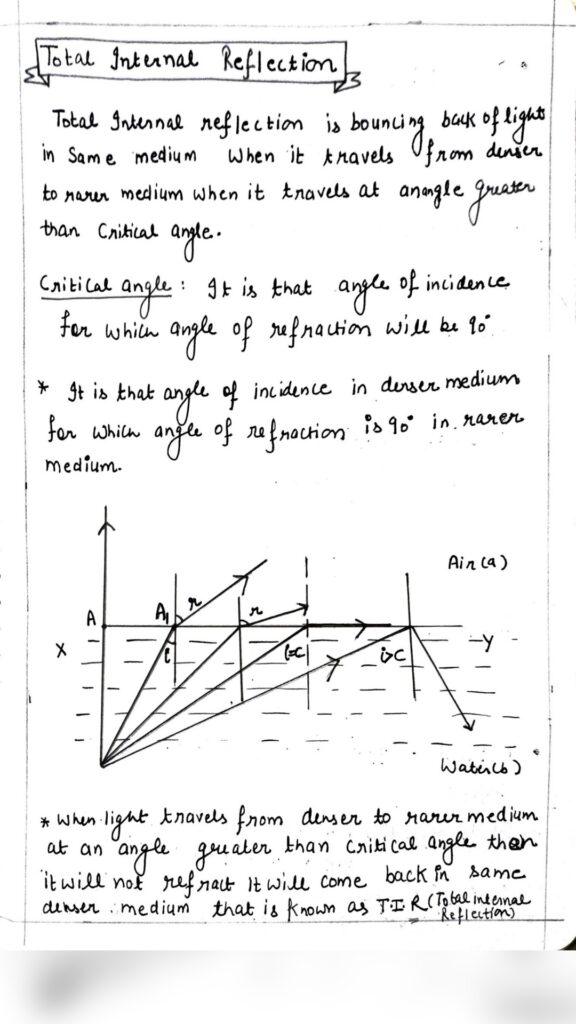 Total Internal Reflection
Total Internal reflection is bouncing back of light
in Same medium When it travels from denser
to rarer medium when it travels at anangle greater
than Critical angle.
Critical angle : It is that angle of incidence
for which angle of refraction will be 90°
* It is that angle of incidence in denser medium
for which angle of refraction is 90° in rarer
medium.
Air (a)
A A1 r r
X i i=c i>c Y
Water(b)
* When light travels from denser to rarer medium
at an angle greater than Critical angle then
it will not refract It will come back in same
denser medium that is known as T I R (Total internal
Reflection)